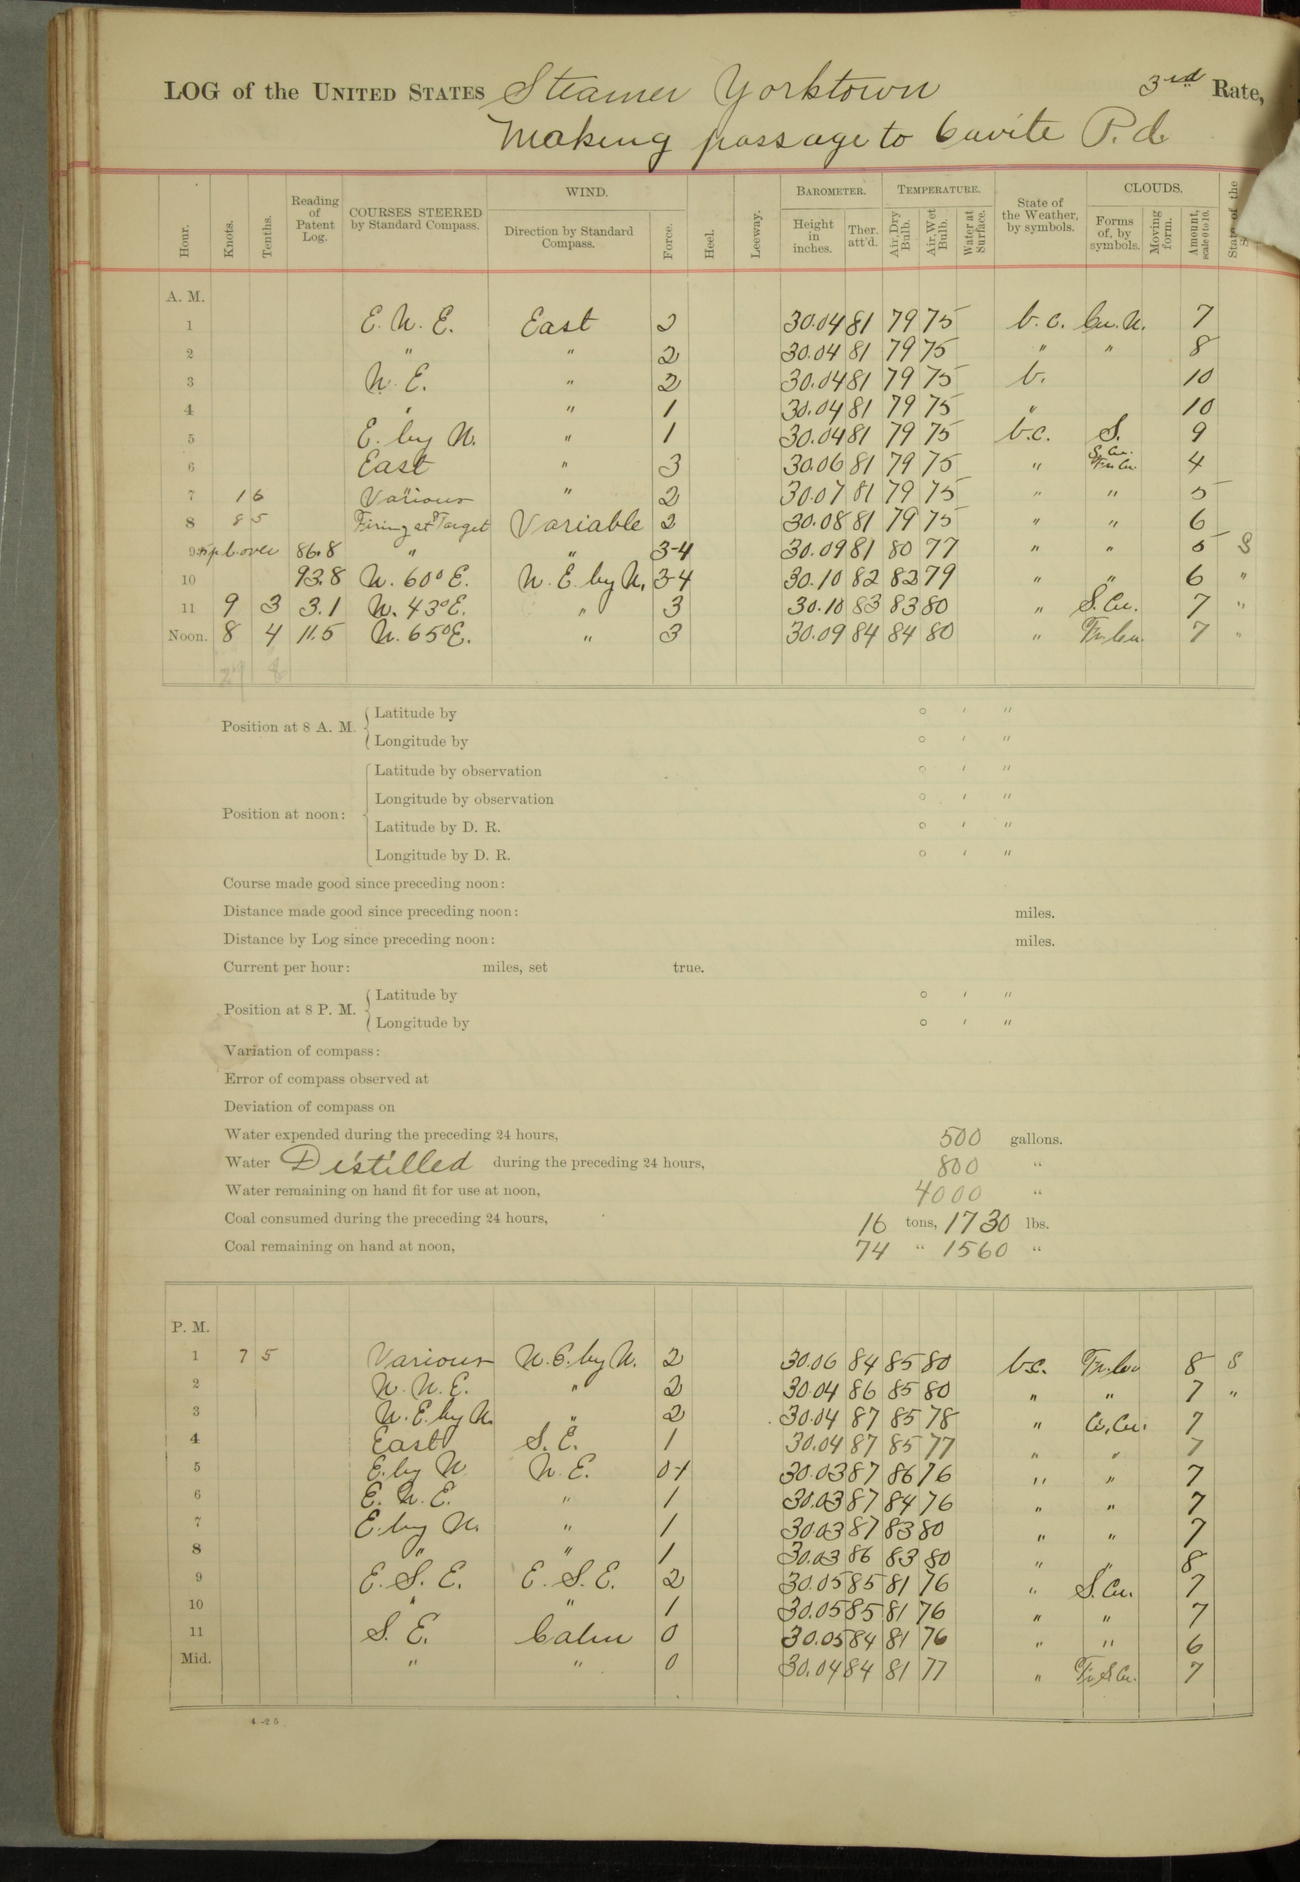 LOG of the UNITED STATES Steamer Yorktown 3rd Rate,
Making passage to Cavite P. I.
Hour. Knots. Tenths. Reading of Patent Log. COURSES STEERED by Standard Compass. WIND. Direction by Standard Compass. Force. Heel. Leeway. BAROMETER. Height in inches. Ther. att'd. TEMPERATURE. Air, Dry Bulb. Air, Wet Bulb. Water at Surface. State of the Weather, by symbols. CLOUDS. Forms of, by symbols. Moving form. Amount, scale 0 to 10. State of the
A. M.
1 E. N. E. East 2 30.04 81 79 75 b. c. Cu. N. 7
2 " " 2 30.04 81 79 75 " " 8
3 N. E. " 2 30.04 81 79 75 b. 10
4 " " 1 30.04 81 79 75 " 10
5 E. by N. " 1 30.04 81 79 75 b.c. S. 9
6 East " 3 30.06 81 79 75 " S. Cu. Fr. Cu. 4
7 1 6 Various " 2 30.07 81 79 75 " " 5
8 8 5 Firing at Target Variable 2 30.08 81 79 75 " " 6
9 p.l. over 86.8 " " 3-4 30.09 81 80 77 " " 5 S
10 93.8 N. 60° E. N. E. by N. 3-4 30.10 82 82 79 " " 6 "
11 9 3 3.1 N. 43° E. " 3 30.10 83 83 80 " S. Cu. 7 "
Noon. 8 4 11.5 N. 65° E. " 3 30.09 84 84 80 " Fr. Cu. 7 "
Position at 8 A. M. { Latitude by ° ′ ″
Longitude by ° ′ ″
Position at noon: { Latitude by observation ° ′ ″
Longitude by observation ° ′ ″
Latitude by D. R. ° ′ ″
Longitude by D. R. ° ′ ″
Course made good since preceding noon:
Distance made good since preceding noon: miles.
Distance by Log since preceding noon: miles.
Current per hour: miles, set true.
Position at 8 P. M. { Latitude by ° ′ ″
Longitude by ° ′ ″
Variation of compass:
Error of compass observed at
Deviation of compass on
Water expended during the preceding 24 hours, 500 gallons.
Water Distilled during the preceding 24 hours, 800 "
Water remaining on hand fit for use at noon, 4000 "
Coal consumed during the preceding 24 hours, 16 tons, 1730 lbs.
Coal remaining on hand at noon, 74 " 1560 "
P. M.
1 7 5 Various N. E. by N. 2 30.06 84 85 80 b.c. Fr. Cu 8 S
2 N. N. E. " 2 30.04 86 85 80 " " 7 "
3 N. E. by N. " 2 30.04 87 85 78 " Ci. Cu. 7
4 East S. E. 1 30.04 87 85 77 " " 7
5 E. by N N. E. 0-1 30.03 87 86 76 " " 7
6 E. N. E. " 1 30.03 87 84 76 " " 7
7 E. by N. " 1 30.03 87 83 80 " " 7
8 " " 1 30.03 86 83 80 " " 8
9 E. S. E. E. S. E. 2 30.05 85 81 76 " S. Cu. 7
10 " " 1 30.05 85 81 76 " " 7
11 S. E. Calm 0 30.05 84 81 76 " " 6
Mid. " " 0 30.04 84 81 77 " Fr. S. Cu. 7
4-25